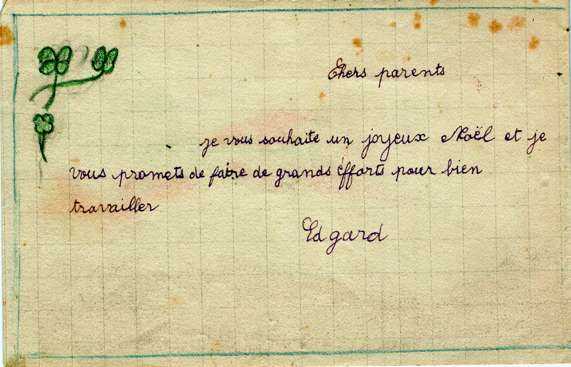 Chers parents
je vous souhaite un joyeux Noël et je
vous promets de faire de grands éfforts pour bien
travailler
Edgard